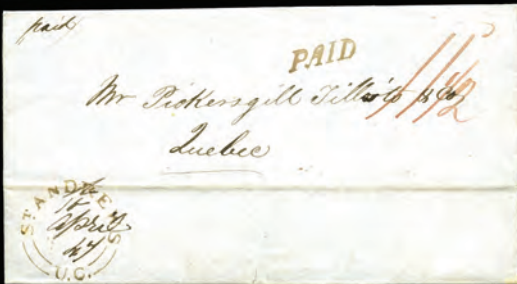 paid
PAID
1/1½
Mr Pickersgill Tillsto & Co
Quebec
ST ANDREWS
April
47
U.C.